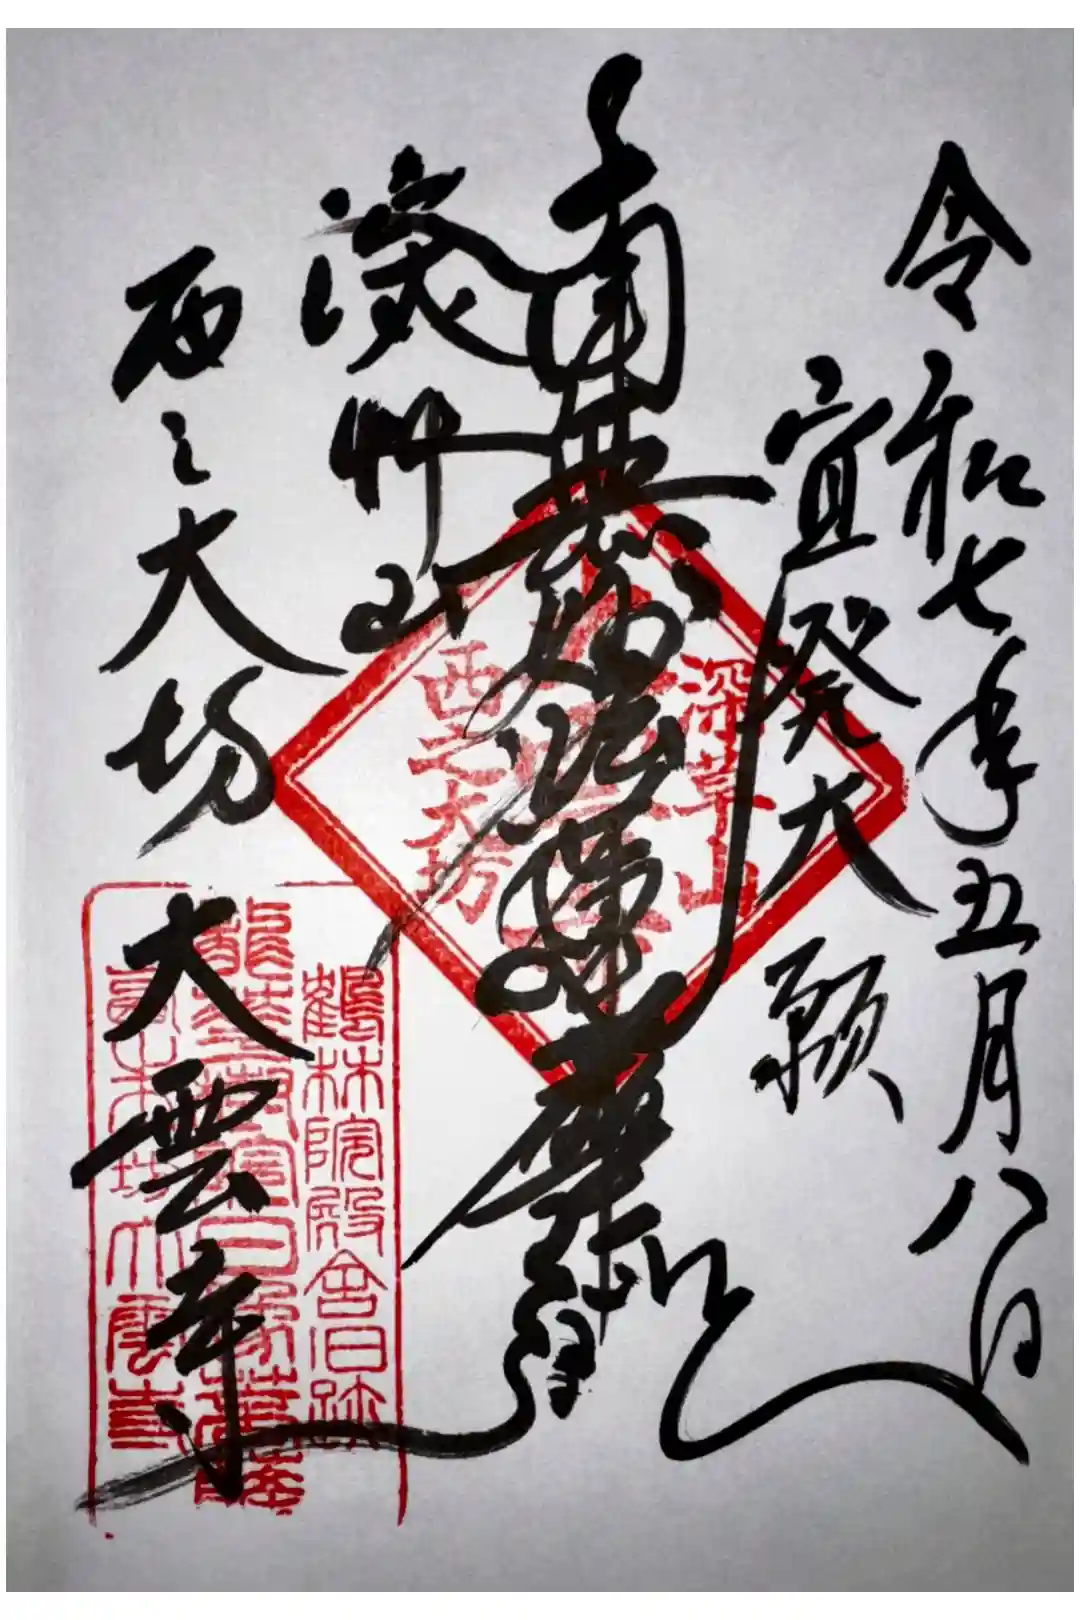 令和七年五月八日
宜発大願
南無妙法蓮華経
深艸山
西之大坊
大雲寺
深草山
西之大坊
鶴林院殿舎旧跡